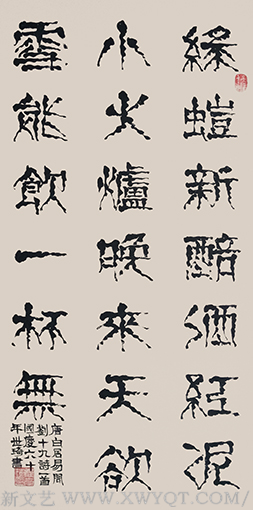 綠螘新醅酒紅泥
小火爐晚來天欲
雪能飲一杯無
唐白居易問
劉十九詩
國慶六十
年世琦書
新文艺 WWW.XWYQT.COM/